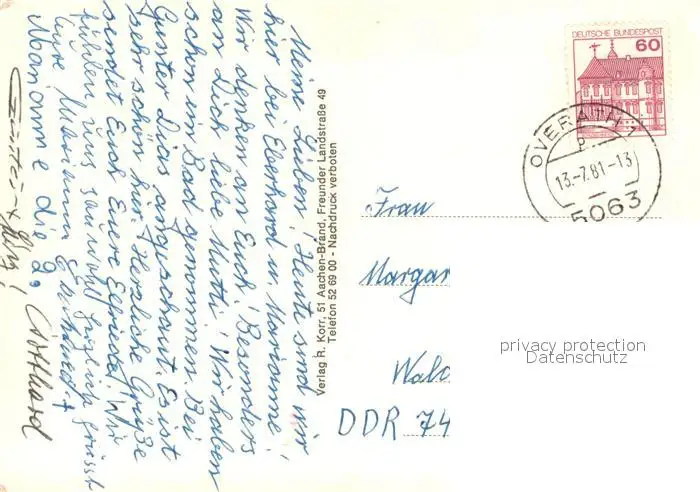 Meine Lieben! Heute sind wir
hier bei Eberhard u. Marianne,
Wir denken an Euch! Besonders
an Dich liebe Mutti! Wir haben
schon im Bad genommen. Bei
Günter Dias angeschaut. Es ist
sehr schön hier. Herzliche Grüße
sendet Euch Eure Elfriede! Wir
fühlen uns sauwohl
Eure
Marianne die 2, Gotthard
Günter +
Verlag R. Korr, 51 Aachen-Brand, Freunder Landstraße 49
Telefon 52 69 00 - Nachdruck verboten
DEUTSCHE BUNDESPOST
60
OVERATH 1
b
13.-7.81-13
5063
Frau
Margar
Wald
DDR 74
privacy protection
Datenschutz